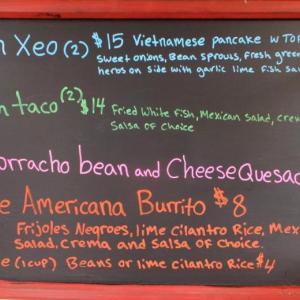 Xeo (2) $15 Vietnamese pancake w TOF
sweet onions, Bean sprouts, fresh green
herbs on side with garlic lime fish sau
taco (2) $14 Fried White fish, Mexican salad, crem
Salsa of choice
orracho bean and Cheese Quesad
e Americana Burrito $8
Frijoles Negroes, lime cilantro Rice, Mex
Salad, crema and Salsa of choice.
e (1cup) Beans or lime cilantro Rice $4